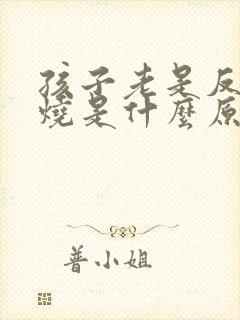 孩子老是反
燒是什麼原
普小姐